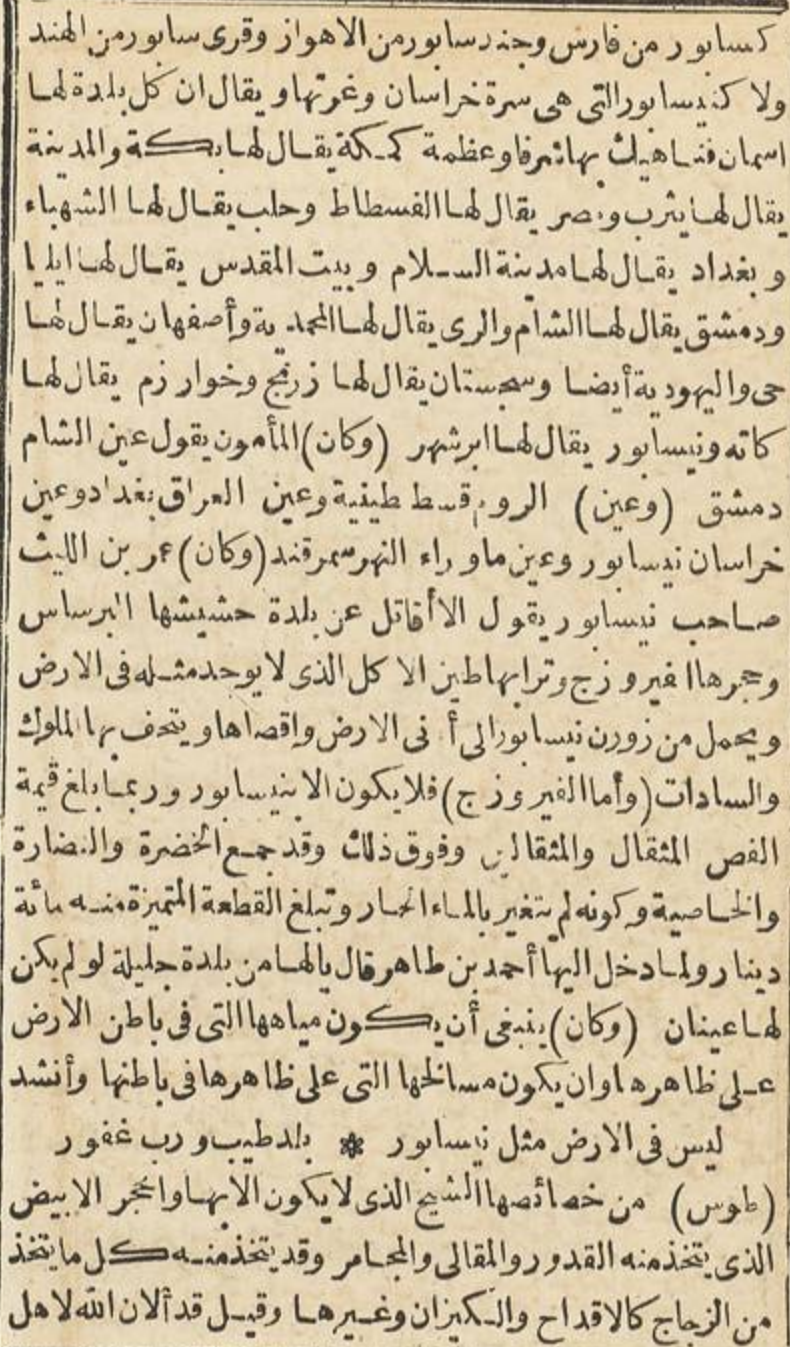 كسابور من فارس وجندسابور من الاهواز وقرى سابور من الهند
ولا كنيسابور التى هى سرة خراسان وغرتها ويقال ان كل بلدة لها
اسمان فناهيك بها شرفا وعظمة كمكة يقال لها بكة والمدينة
يقال لها يثرب ومصر يقال لها الفسطاط وحلب يقال لها الشهباء
وبغداد يقال لها مدينة السلام وبيت المقدس يقال لها ايليا
ودمشق يقال لها الشام والرى يقال لها المحمدية وأصفهان يقال لها
حى واليهودية أيضا وسجستان يقال لها زرنج وخوارزم يقال لها
كاثه ونيسابور يقال لها ابرشهر (وكان) المأمون يقول عين الشام
دمشق (وعين) الروم قسطنطينية وعين العراق بغداد وعين
خراسان نيسابور وعين ماوراء النهر سمرقند (وكان) عمر بن الليث
صاحب نيسابور يقول الا أقاتل عن بلدة حشيشها البرساس
وحجرها الفيروزج وترابها طين الاكل الذى لا يوجد مثله فى الارض
ويحمل من زورن نيسابور الى أ فى الارض واقصاها ويتحف بها الملوك
والسادات (وأما الفيروزج) فلا يكون الا بنيسابور وربما بلغ قيمة
الفص المثقال والمثقالين وفوق ذلك وقد جمع الخضرة والنضارة
والخاصية وكونه لم يتغير بالماء الحار وتبلغ القطعة المتميزة منه مائة
دينار ولما دخل اليها أحمد بن طاهر قال يا لها من بلدة جليلة لو لم يكن
لها عينان (وكان) ينبغى أن يكون مياهها التى فى باطن الارض
على ظاهرها وان يكون مسالحها التى على ظاهرها فى باطنها وأنشد
ليس فى الارض مثل نيسابور * بلد طيب ورب غفور
(طوس) من خصائصها الشيح الذى لا يكون الا بها والحجر الابيض
الذى يتخذ منه القدور والمقالى والمجامر وقد يتخذ منه كل ما يتخذ
من الزجاج كالاقداح والكيزان وغيرها وقيل قد ألان الله لاهل